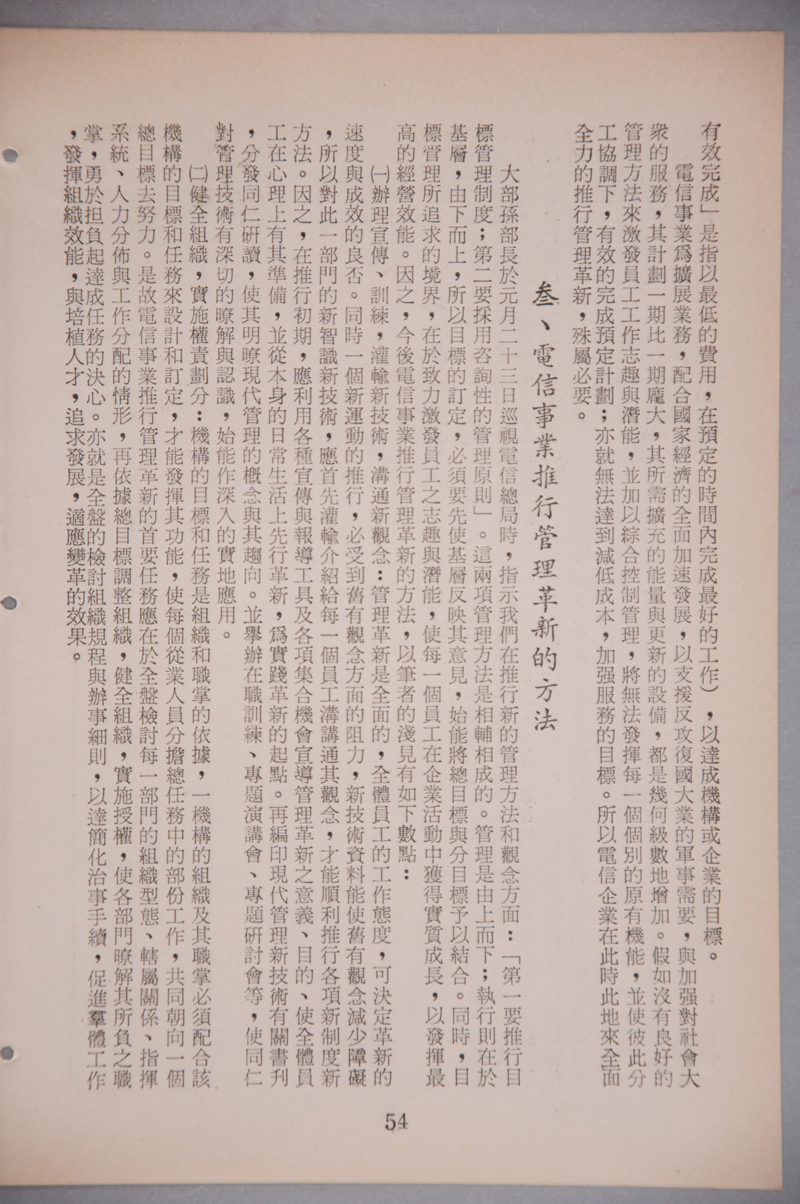 有效完成」是指以最低的費用，在預定的時間內完成最好的工作），以達成機構或企業的目標。
電信事業爲擴展業務，配合國家經濟的全面加速發展，以支援反攻復國大業的軍事需要，與加强對社會大
衆的服務，其計劃一期比一期龐大，其所需擴充的能量與更新的設備，都是幾何級數地增加。假如沒有良好的
管理方法來激發員工工作志趣與潛能，並加以綜合控制管理，將無法發揮每一個個別的原有機能，並使彼此分
工協調下，有效的完成預定計劃；亦就無法達到減低成本，加强服務的目標。所以電信企業在此時此地來全面
全力的推行管理革新，殊屬必要。
叁、電信事業推行管理革新的方法
大部孫部長於元月二十三日巡視電信總局時，指示我們在推行新的管理方法和觀念方面：「第一要推行目
標管理制度；第二要採用咨詢性的管理原則」。這兩項管理方法是相輔相成的。管理是由上而下；執行則在於
基層，由下而上，所以目標的訂定，必須要先使基層反映其意見，始能將總目標與分目標予以結合。同時，目
標管理所追求的境界，在於致力激發員工之志趣與潛能，使每一個員工在企業活動中獲得實質成長，以發揮最
高的經營效能。因之，今後電信事業推行管理革新的方法，以筆者的淺見有如下數點：
㈠辦理宣傳、訓練，灌輸新技術，溝通新觀念：管理革新是全面的，全體員工的工作態度，可決定革新的
速度與成效的良否。同時一個新運動的推行，必受到舊有觀念方面的阻力，新技術資料能使舊有觀念減少障礙
，所以對此一部門的新智識新技術，應首先灌輸介紹給每一個員工溝講通其觀念，才能順利推行各項新制度新
方法。因之，在推行初期，應利用各種宣傳與報導工具及各項集合機會宣導管理革新之意義、目的、使全體員
工在心理上有其準備，並從本身的日常生活上先行革新，爲實踐革新的起點。再編印現代管理新技術有關書刊
，分發同仁研讀，使其明瞭現代管理的概念與其趨向。並舉辦在職訓練、專題演講會、專題研討會等，使同仁
對管理技術有深切的瞭解與認識，始能作深入的實地應用。
㈡健全組織，實施權責劃分：機構的目標和任務是組織和職掌的依據，一機構的組織及其職掌必須配合該
機構的目標和任務來設計和訂定，才能發揮其功能，使每個從業人員分擔總任務中的部份工作，共同朝向一個
總目標去努力。是故電信事業推行管理革新的首要任務應在於全盤檢討每一部門的組織型態、轄屬關係、指揮
系統、人力分佈與工作分配的情形，再依據總目標調整組織，健全組織，實施授權，使各部門瞭解其所負之職
掌，勇於担負起達成任務的決心。亦就是全盤的檢討組織規程與辦事細則，以達簡化治事手續，促進羣體工作
，發揮組織效能，與培植人才，追求發展，適應變革的效果。
54